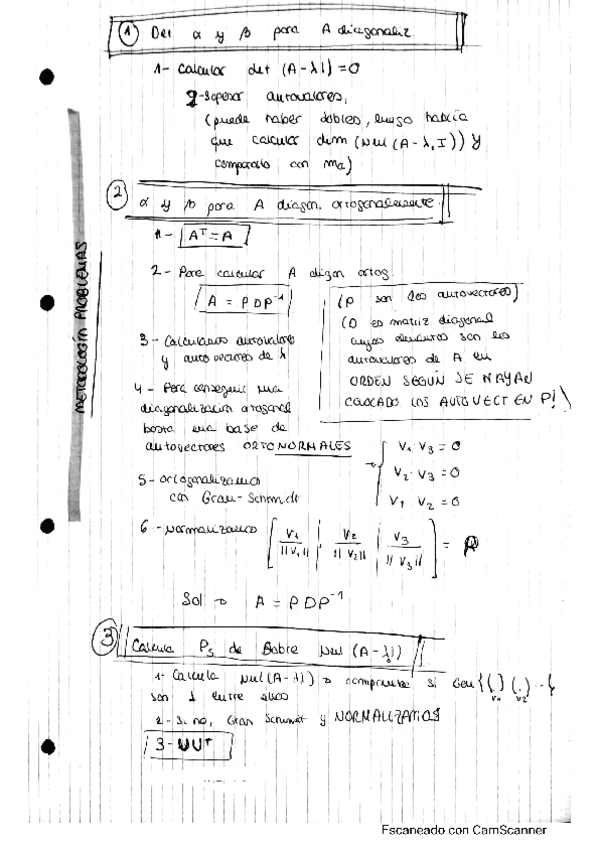 ① Det α y β para A diagonaliz
1- Calcular det (A - λI) = 0
2- Sepasor autovalores,
(puede haber dobles, luego habría
que calcular dim (Nul (A - λ, I)) y
compararlo con ma)
② α y β para A diagon. ortogonalmente.
1- Aᵀ = A
2 - Para calcular A diagon ortog.
A = PDP⁻¹
(P son los autovectores)
(D es matriz diagonal
cuyos elementos son los
autovalores de A en
ORDEN SEGÚN SE HAYAN
COLOCADO LOS AUTOVECT EN P!)
3 - Calculamos autovalores
y autovectores de A
4 - Para conseguir una
diagonalización ortogonal
basta una base de
autovectores ORTONORMALES
V₁ · V₃ = 0
V₂ · V₃ = 0
V₁ V₂ = 0
5 - Ortogonalizamos
con Gram - Schmidt
6 - Normalizamos [ V₁ / ||V₁|| | V₂ / ||V₂|| | V₃ / ||V₃|| ] = P
Sol → A = PDP⁻¹
③ Calcula Ps de sobre Nul (A - λI)
1- Calcula Nul (A - λI) → comprueba si Gen { ( )v₁ ( )v₂ .. }
son ⊥ entre ellos
2 - Si no, Gram Schmidt y NORMALIZAMOS
3 - UUᵀ
METODOLOGÍA PROBLEMAS
Escaneado con CamScanner